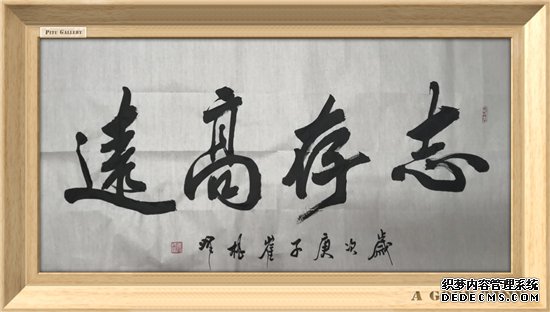 Pite Gallery
志存高遠
歲次庚子崔
织梦内容管理系统
DEDECMS.COM